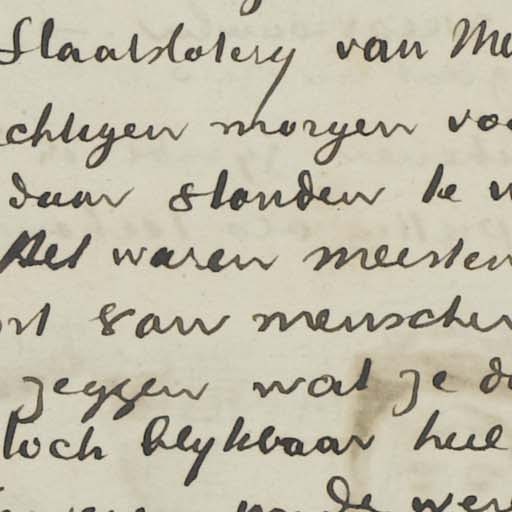 Staatsloterij van Me
achtigen morgen voo
daar stonden te w
Het waren meesten
ort van menschen
zeggen wat ze da
toch blijkbaar heel